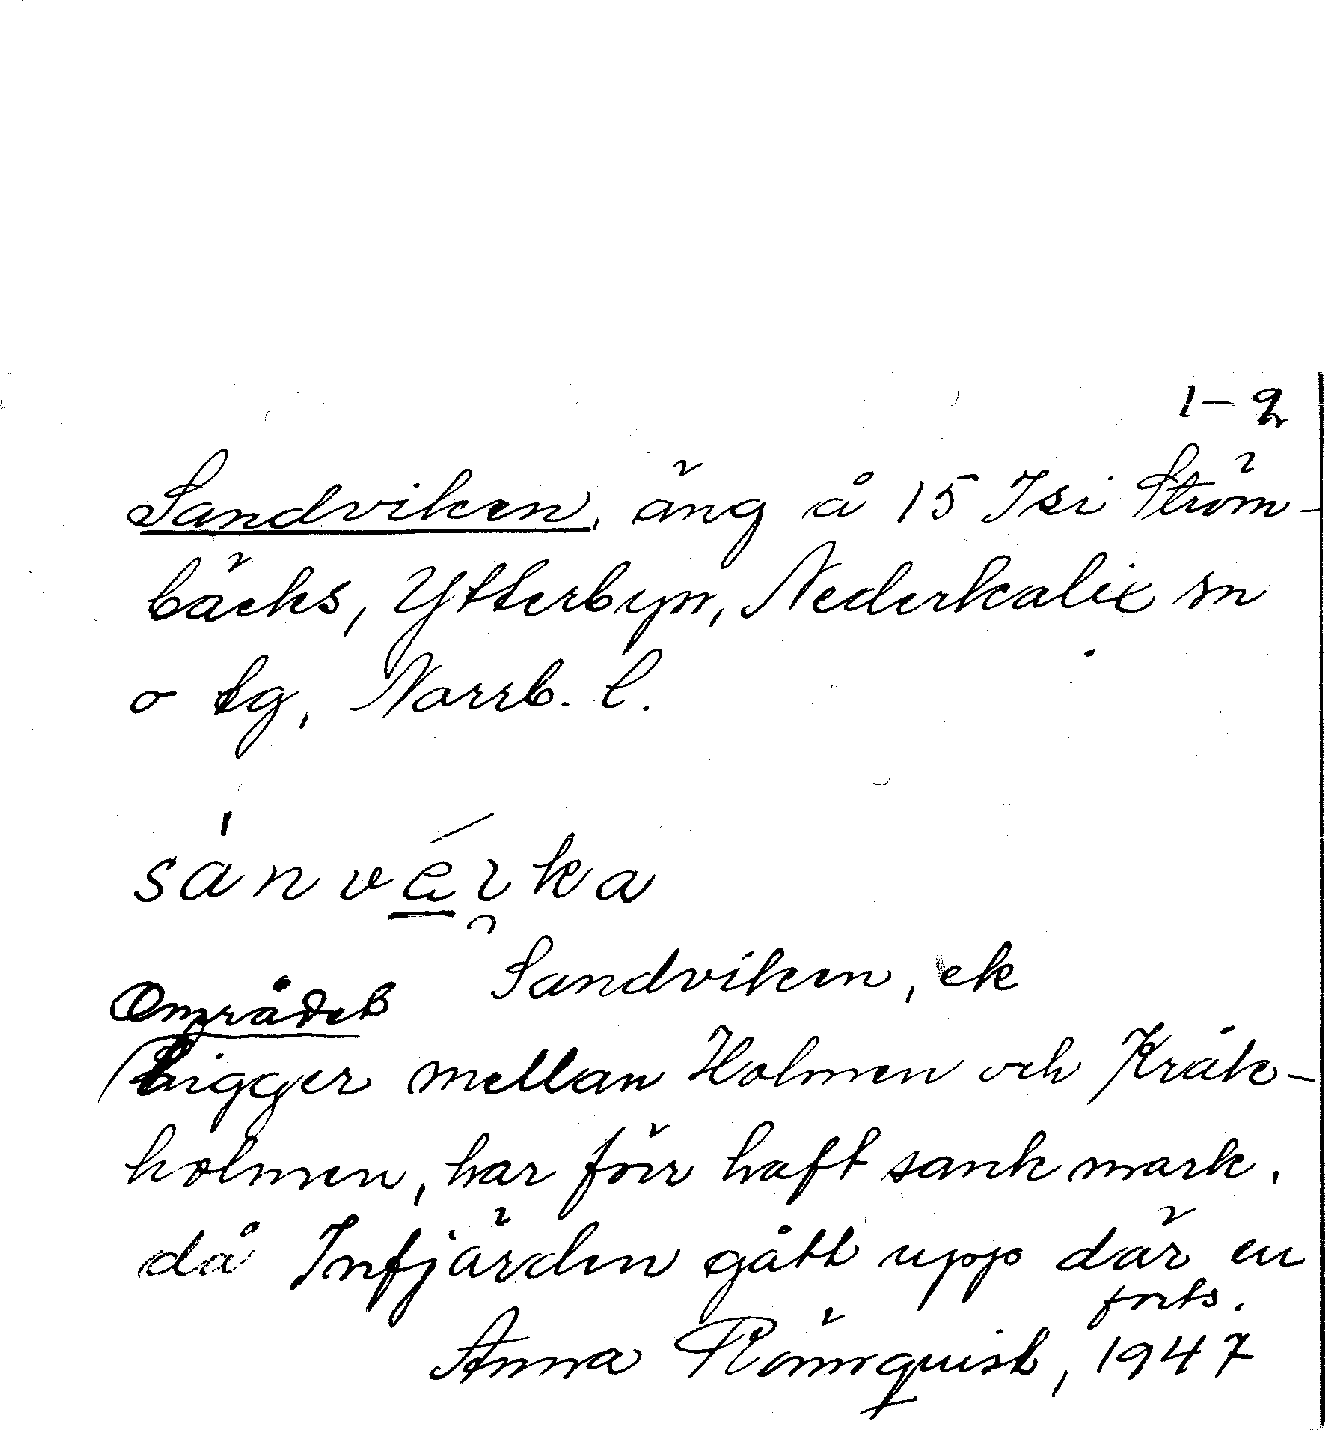 1–2
Sandviken, äng å 15 Isi Ström-
bäcks, Ytterbyn, Nederkalix sn
o tg, Norrb. l.
Sandviken, ek
Området
ligger mellan Holmen och Kråk-
holmen, har förr haft sank mark,
då Infjärden gått upp där en
forts.
Anna Rönnquist, 1947